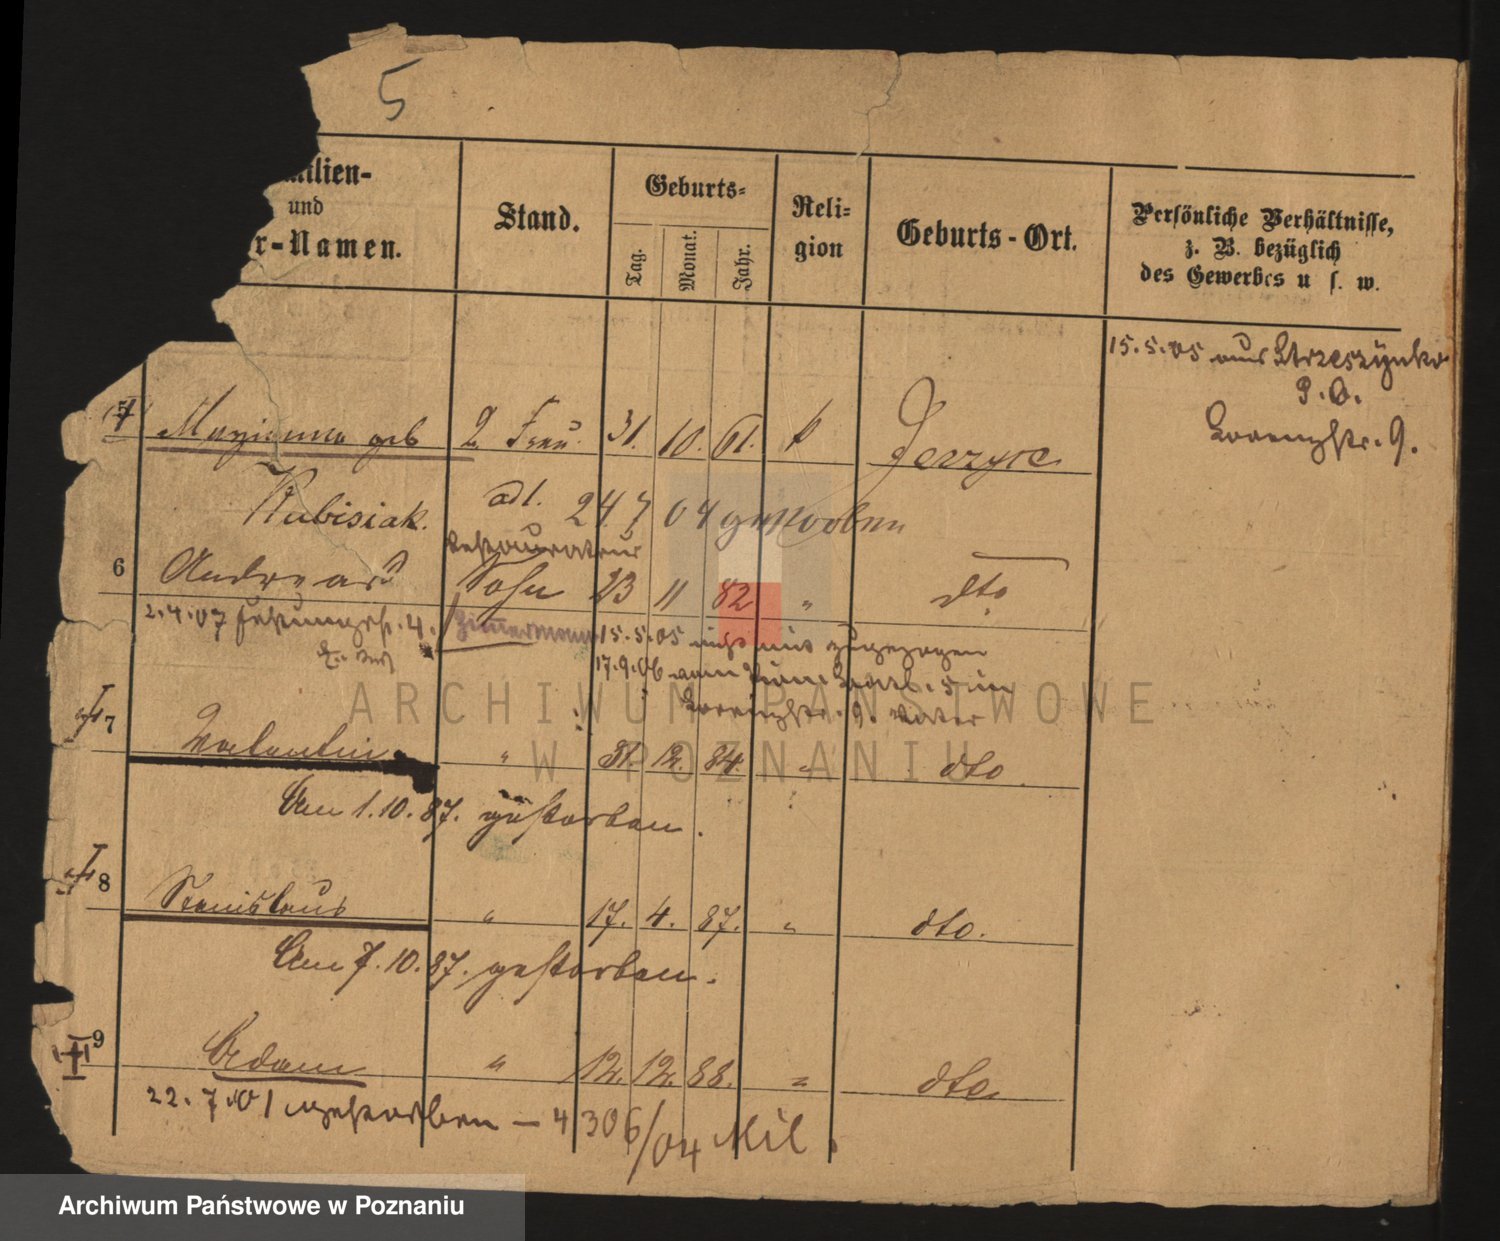 5
milien-
und
r-Namen.
Stand.
Geburts-
Tag.
Monat.
Jahr.
Reli-
gion
Geburts-Ort.
Persönliche Verhältnisse,
z. B. bezüglich
des Gewerbes u s. w.
15.5.05 aus Strzeszynko
P.O.
Lorenzstr. 9.
5 Marianna geb 2 Frau 31. 10. 61. k Jerzyce
Kubisiak. 24 7 04 gestorben
Restaurateur
6 Andreas Sohn 23 11 82 " dto
2.4.07 4. Zimmermann 15.5.05 nicht mit zugezogen
17.9.06 vom 5 in
Lorenzstr. 9. Vater
7 Valentin " 31. 12. 84. " dto
Am 1.10.87. gestorben.
8 Stanislaus " 17. 4. 87. " dto.
Am 7.10.87. gestorben.
9 Adam " 12. 12. 88. " dto.
22.7.01 gestorben – 4306/04 Mil.
ARCHIWUM PAŃSTWOWE
W POZNANIU
Archiwum Państwowe w Poznaniu